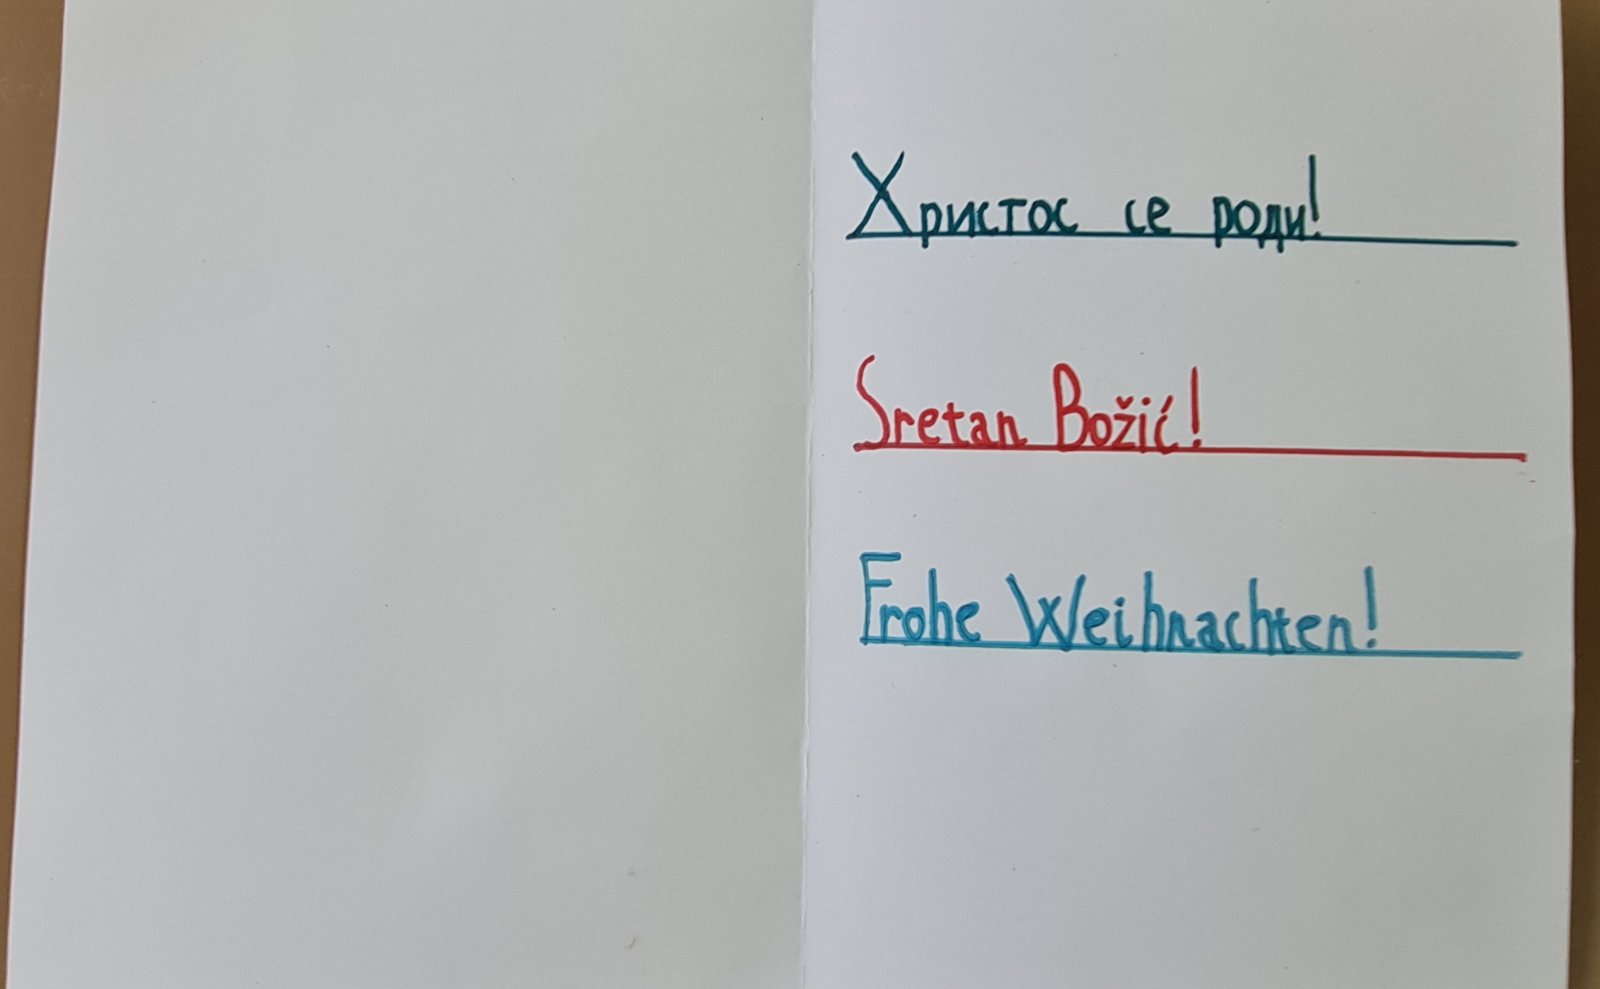 Христос се роди!
Sretan Božić!
Frohe Weihnachten!